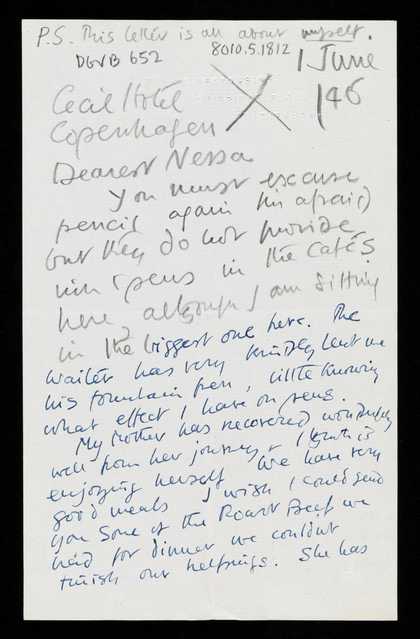 P.S. This letter is all about myself.
DGVB 652 8010.5.1812
1 June
/46
Cecil Hotel
Copenhagen
Dearest Nessa
You must excuse
pencil again I'm afraid
but they do not provide
ink & pens in the cafés
here, although I am sitting
in the biggest one here. The
waiter has very kindly lent me
his fountain pen, little knowing
what effect I have on pens.
My Mother has recovered wonderfully
well from her journey & I think is
enjoying herself. We have very
good meals I wish I could send
you some of the Roast Beef we
had for dinner we couldn't
finish our helpings. She has